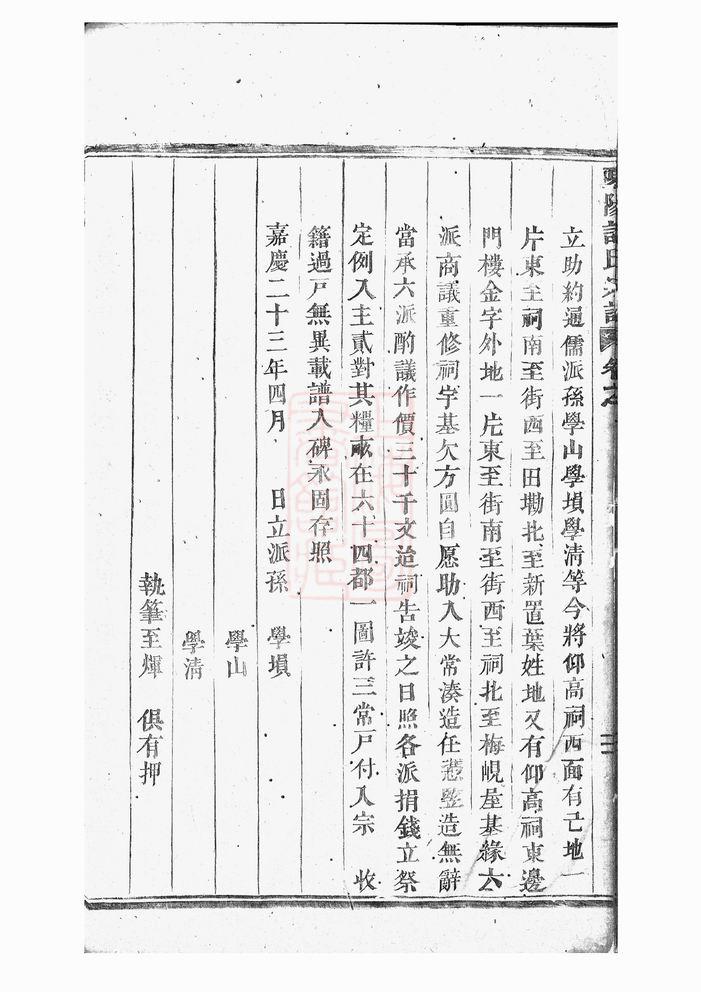 立助約遍儒派孫學山學塤學淸等今將仰高祠西面有己地一
片東至祠南至街西至田塝北至新置葉姓地又有仰高祠東邊
門樓金字外地一片東至街南至街西至祠北至梅峴屋基緣六
派商議重修祠宇基欠方圓自愿助入大常湊造任憑竪造無辭
當承六派酌議作價三十千文迨祠吿竣之日照各派捐錢立祭
定例入主貳對其糧畝在六十四都一圖許三常戸付入宗 收
籍過戸無異載譜入碑永固存照
嘉慶二十三年四月 日立派孫 學塤
學山
學淸
執筆至煇 俱有押